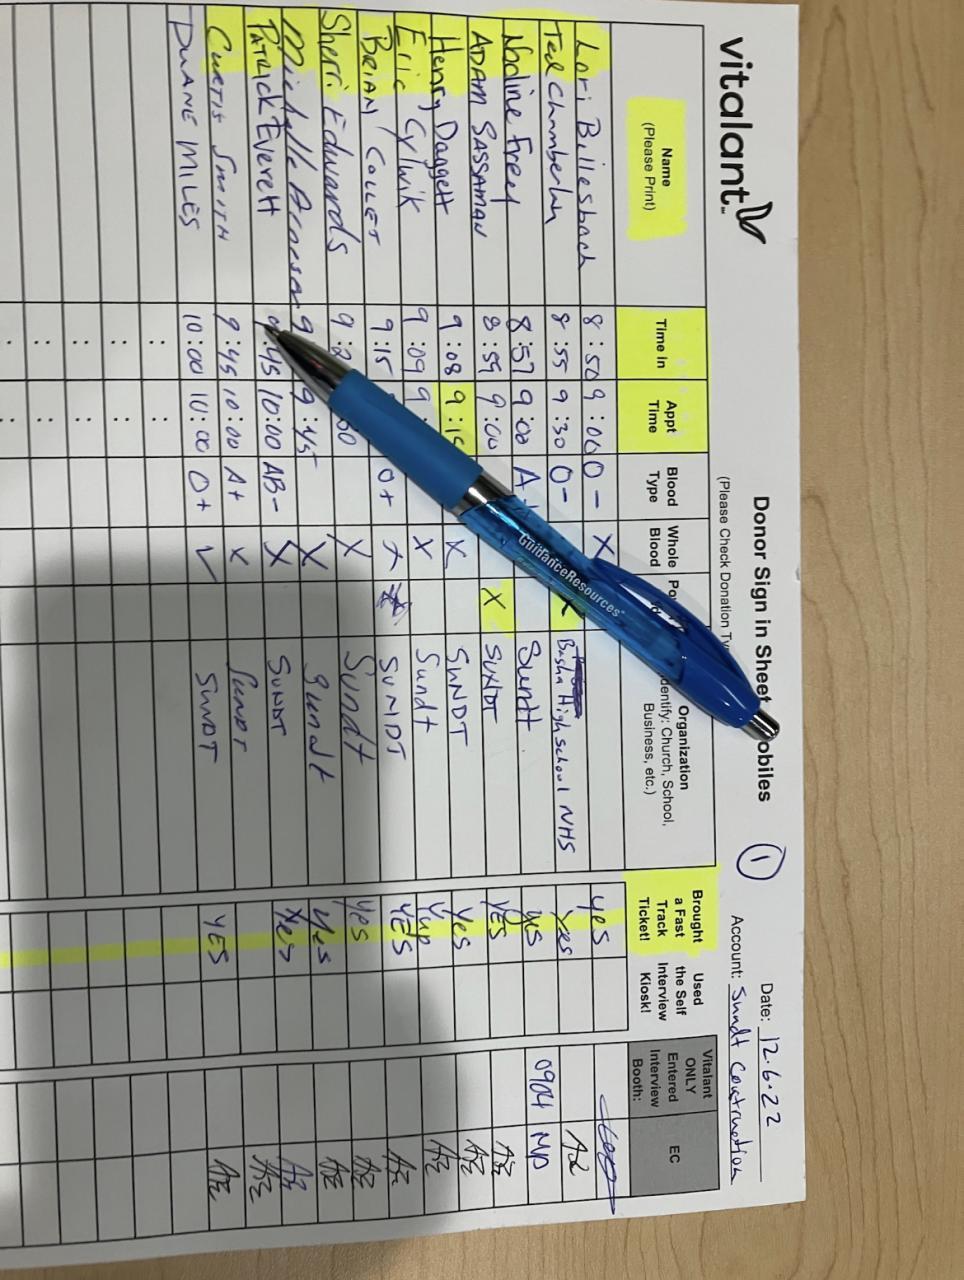 vitalant
Donor Sign in Sheet obiles
(Please Check Donation Ty
1
Date: 12.6.22
Account: Sundt Construction
Name (Please Print) Time In Appt Time Blood Type Whole Blood Organization dentify: Church, School, Business, etc.) Brought a Fast Track Ticket! Used the Self Interview Kiosk! Vitalant ONLY Entered Interview Booth: EC
Lori Billesbach 8:50 9:00 O- X yes
Ted Chamberlin 8:55 9:30 O- X Basha High school NHS yes AZ
Nadine Freed 8:57 9:00 A Sundt yes 0904 MP
ADAM SASSAMAN 8:59 9:00 X SUNDT YES AZ
Henry Daggett 9:08 9:15 X SUNDT Yes AZ
Eric Cylwik 9:09 9 X Sundt Yup AZ
BRIAN COLLET 9:15 O+ X SUNDT YES AZ
Sherri Edwards 9:2 30 X Sundt yes AZ
Michelle 9 9:45 X Sundt Yes AZ
PATRICK Everett :45 10:00 AB- X SUNDT Yes AZ
CURTIS SMITH 9:45 10:00 A+ X SUNDT AZ
DUANE MILES 10:00 10:00 O+ ✓ SUNDT YES AZ
GuidanceResources®